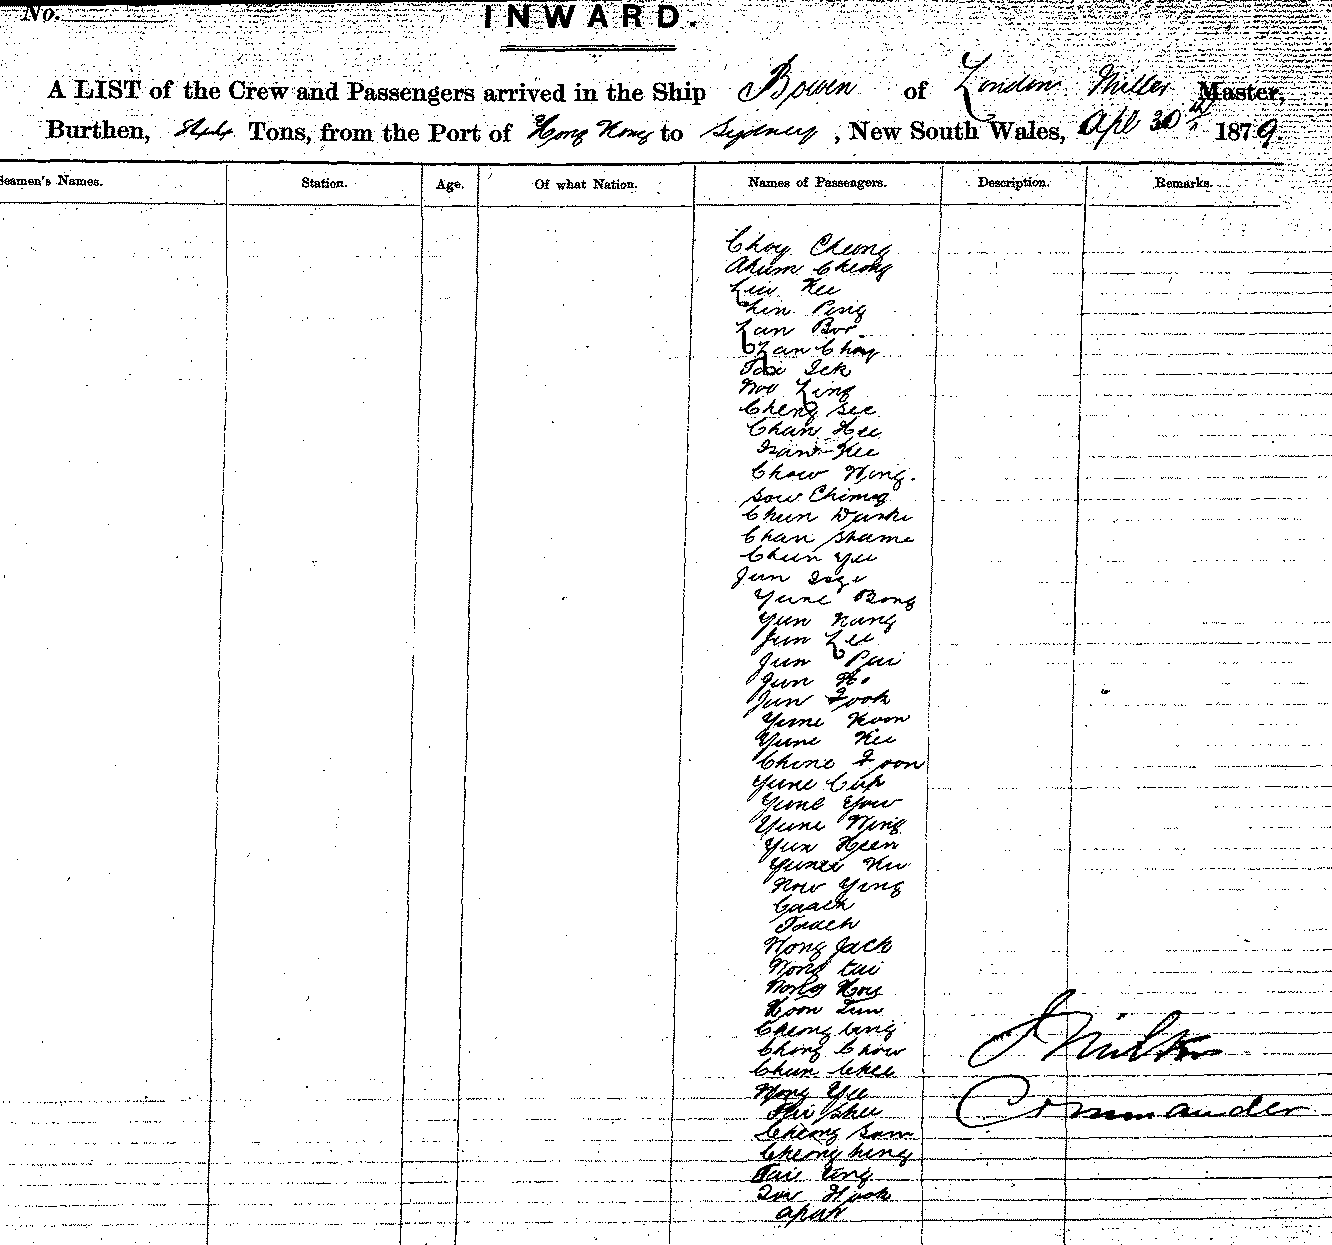 No.
INWARD.
A LIST of the Crew and Passengers arrived in the Ship Bowen of London Miller Master,
Burthen, Tons, from the Port of Hong Kong to Sydney, New South Wales, Apl 30th 1879
Seamen's Names. Station. Age. Of what Nation. Names of Passengers. Description. Remarks.
Choy Cheong
Ahum Cheong
Lui Kee
Lin Ping
Lan Bor
Lan Choy
Ling
Cheng See
Chan Kee
Kee
Chow Wing.
Sow Chimg
Chun
Chan Shame
Chun Yee
Jun
Yune Bong
Yun Kang
Jun Lee
Jun Pui
Jun Ho
Jun Fook
Yune Koon
Yune Kee
Chine Foon
Yune Cup
Yune Yow
Yune Wing
Yun Heen
How Ying
Gaach
Taach
Wong Jack
Wong tai
Wong Hoy
Koon
Cheong
Chong Chow
Chun Chee
Wong Yee
Shee
Cheong Sam
Cheong hing
Hook
apah
J Miller
Commander